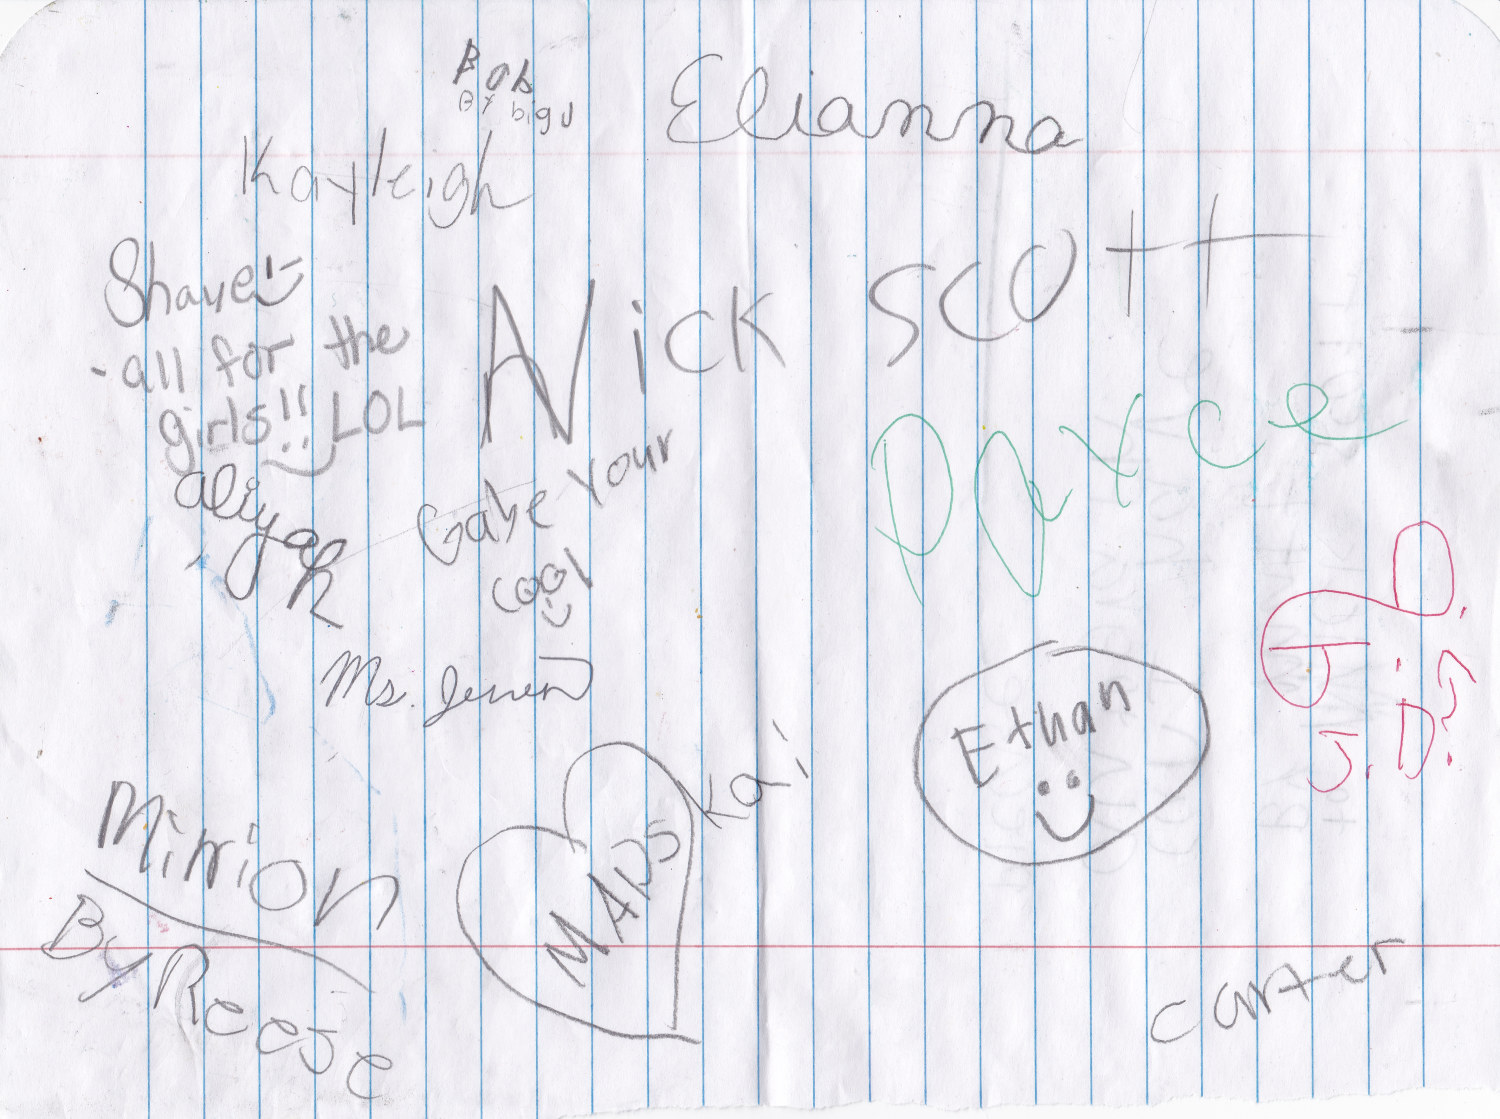 Bob
By bigJ
Elianna
Kayleigh
Shaye
-all for the
girls!! LOL
aliyah
Nick Scott
Payce
Gabe Your
cool
Ms.
J.D.
J.D.?
Ethan
Kai
MADS
Minion
By Reese
carter